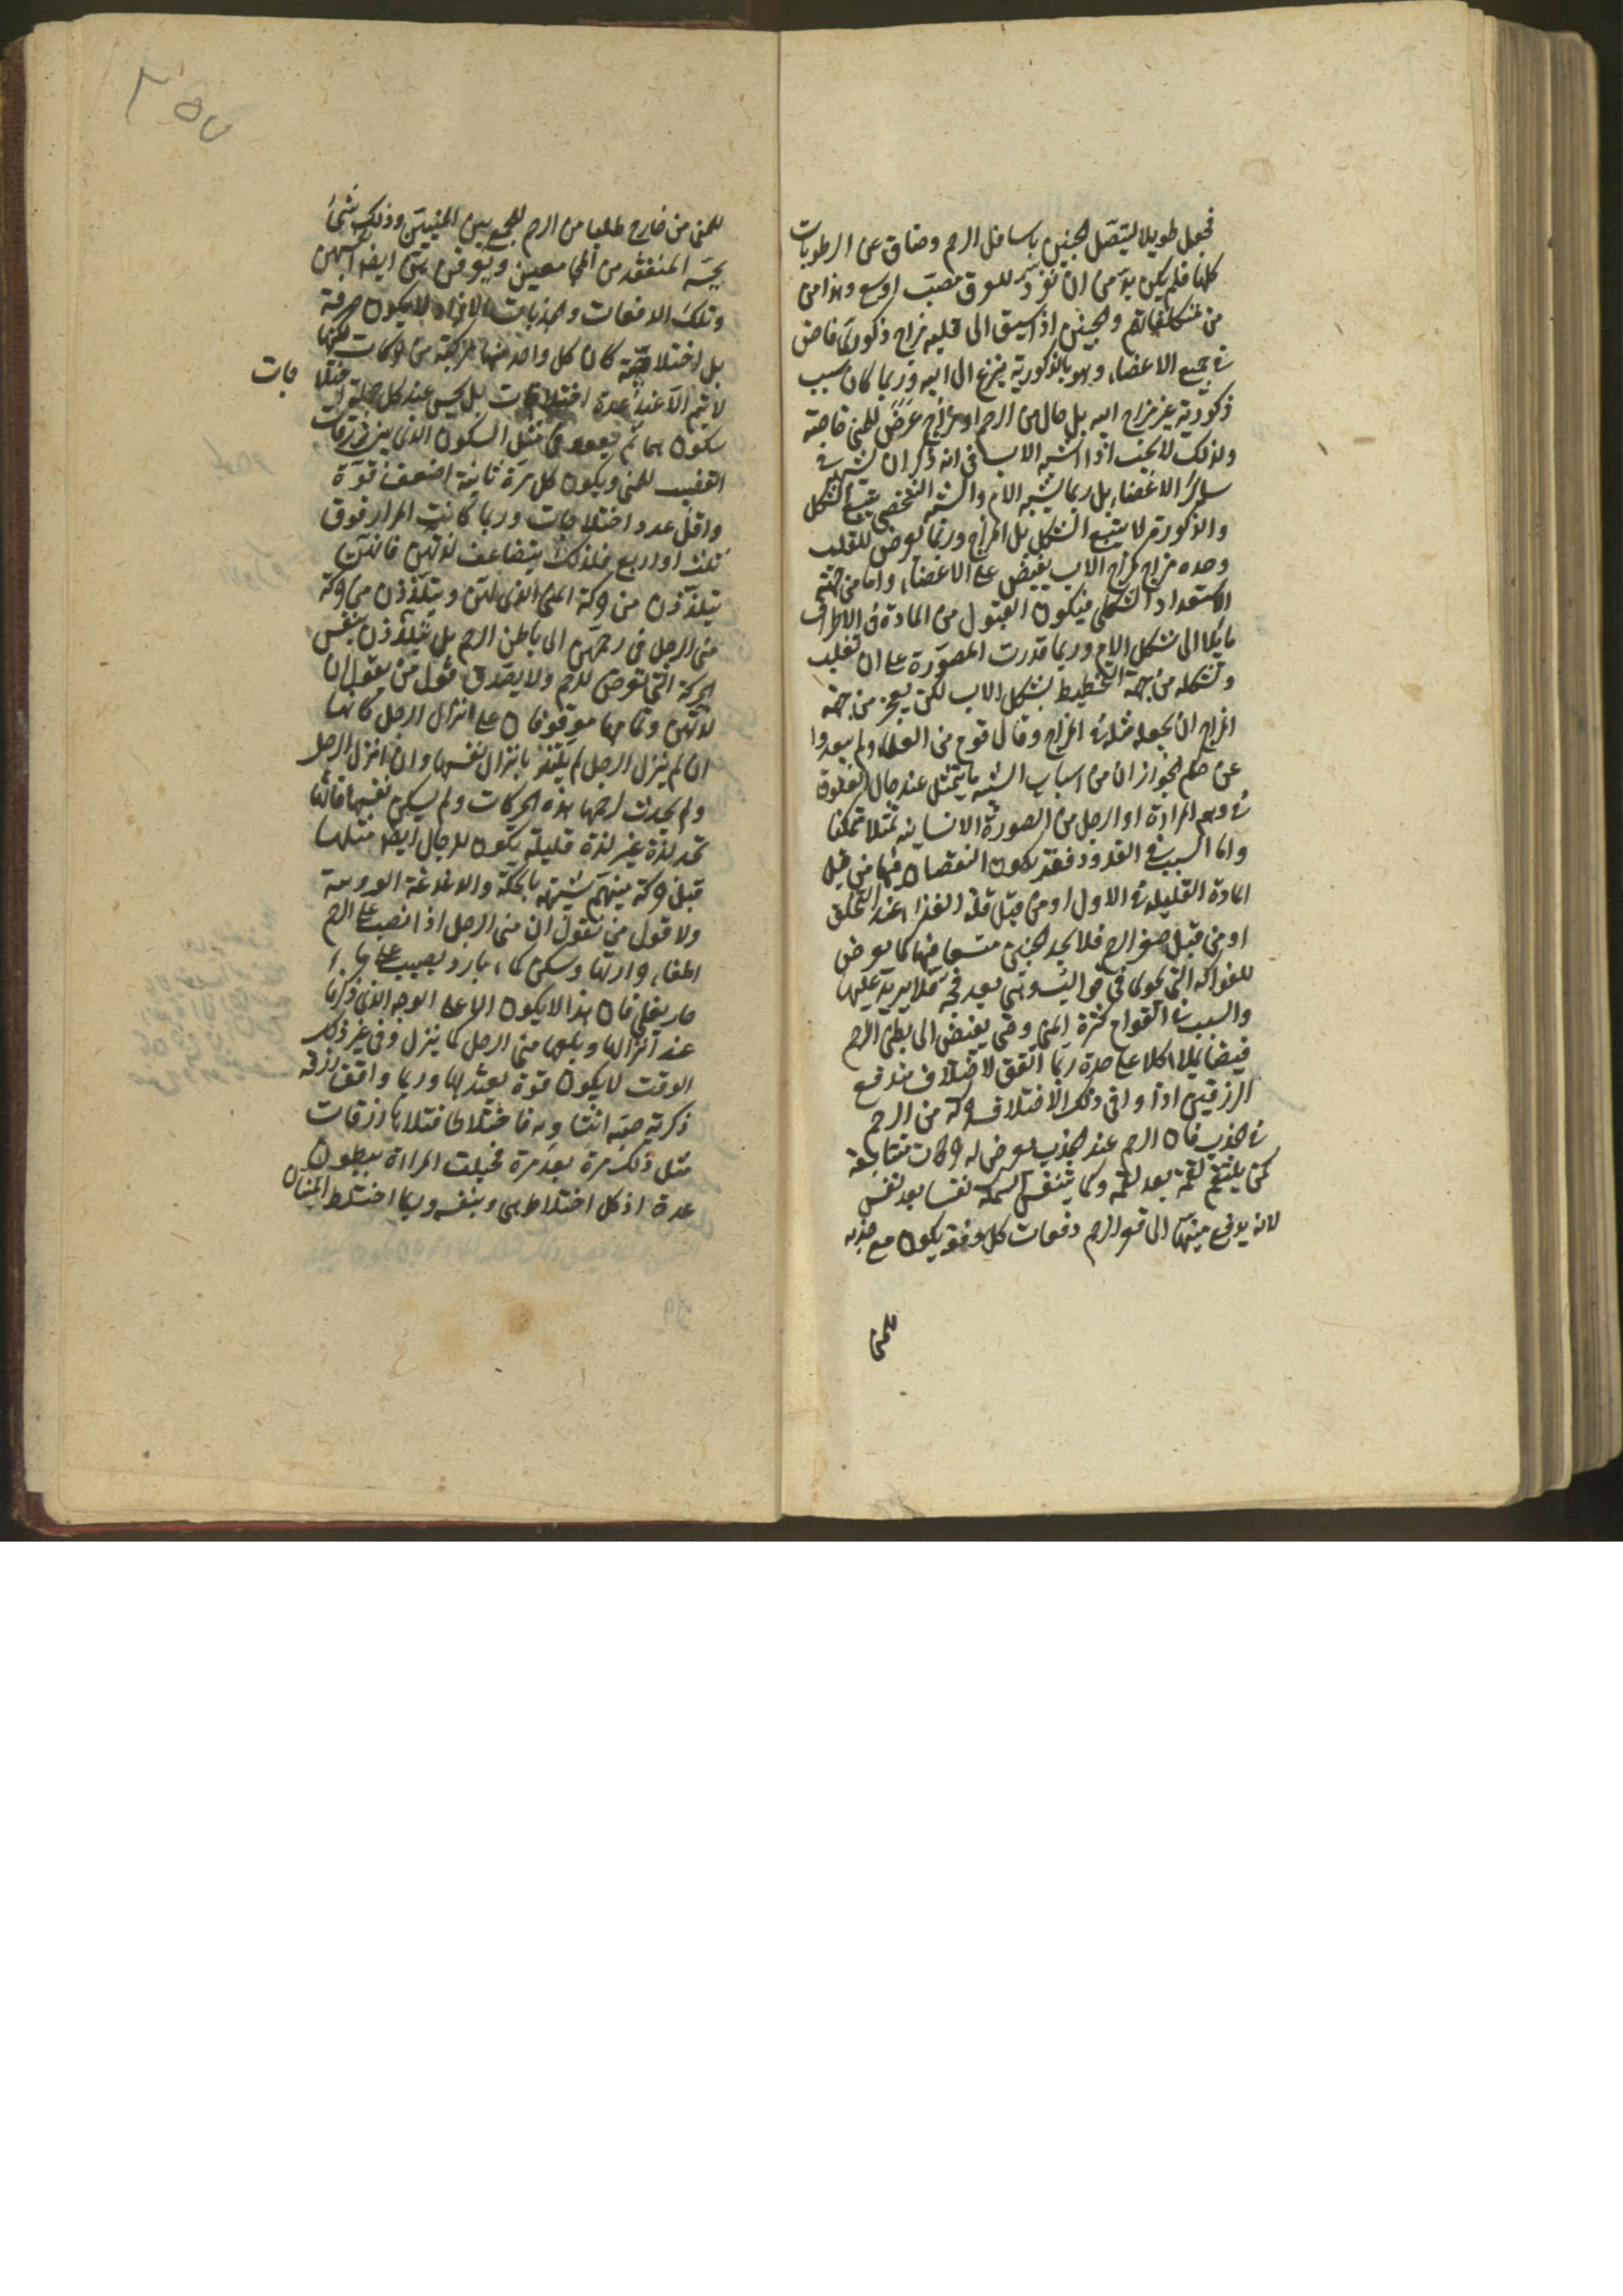 فجعل طويلا ليتصل الجنين باسافل الرحم وضاق عن الرطوبات
كلها فلم يكن بد من ان نفرد للعرق مصب اوسع وهذا من
من متكلفاتهم والجنين اذا سبق الى قلبه مزاج ذكورى فاض
فى جميع الاعضاء وهو بالذكورية ينزع الى ابيه وربما كان سبب
ذكوريته غير مزاج ابيه بل حال من الرحم او مزاج عرض للمنى خاصة
ولذلك لا يجب اذا اشبه الاب فى انه ذكر ان يشبهه فى
سائر الاعضاء بل ربما يشبه الام والشبه الشخصى يتبع الشكل
والذكورة لا يتبع الشكل بل المزاج وربما يعرض للقلب
وحده مزاج كمزاج الاب يفيض على الاعضاء واما من جهة
الاستعداد الشكلى فيكون القبول من المادة فى الاطراف
مايلا الى شكل الام وربما قدرت المصورة على ان تغلب
وتشكله من جهة التخطيط بشكل الاب لكن يعجز من جهة
المزاج ان يجعله مثله فى المزاج وقال قوم من العلماء ولم يبعدوا
عن حكم الجواز ان من اسباب الشبه ما يتمثل عند حال العلوق
فى وهم المراة او الرجل من الصورة الانسانية تمثلا متمكنا
واما السبب فى القدود فقد يكون النقصان فيها من قبل
المادة القليلة فى الاول او من قبل قلة الغذاء عند التخلق
او من قبل صغر الرحم فلا يجد الجنين متسعا فيها كما يعرض
للفواكه التى يكون فى قوالب وهى بعد فجة فلا يزيد عليها
والسبب فى التوام كثرة المنى وحتى يفيض الى بطنى الرحم
فيضا يملا كلا على حدة ربما اتفق لاختلاف مدفع
الزرقين اذا وافى ذلك الاختلاف حركة من الرحم
فى الجذب فان الرحم عند الجذب يعرض له حركات متتابعة
كمن يلتقم لقمة بعد لقمة وكما يتنفس السمكة نفسا بعد نفس
لانه يدفع منيها الى قعر الرحم دفعات كل دفعة يكون مع جذبه
للمنى
للمنى من خارج طلبا من الرحم للجمع بين المنيين وذلك شئ
يحسه المتفقد من المجامعين ويعرفن هن ايضا انفسهن
وتلك الدفعات والجذبات لا يكون صرفة
بل اختلاجية كان كل واحد منها مركبة من حركات لكنها
لا يتم الا عند عدة اختلاجات بل يحس عند كل جملة اختلا
جات
سكون ما ثم يعود فى مثل السكون الذى بين زرقات
القضيب للمنى ويكون كل مرة ثانية اضعف قوة
واقل عدد اختلاجات وربما كانت المرار فوق
ثلث او اربع فلذلك يتضاعف لذتهن فانهن
يتلذذن من حركة المنى الذى لهن ويتلذذن من حركة
منى الرجل فى رحمهن الى باطن الرحم بل يتلذذن بنفس
الحركة التى تعرض للرحم ولا يصدق قول من يقول ان
لذتهن وتمامها موقوفان على انزال الرجل كانها
ان لم ينزل الرجل لم يلتذ بانزال نفسها وان انزل الرجل
ولم يحدث لرحمها هذه الحركات ولم يسكن نفسها فانها
تجد لذة غير لذة قليلة يكون للرجال ايضا مثلها
قبل حركة منيهم شبيهة بالحكة والدغدغة الودية
ولا قول من يقول ان منى الرجل اذا انصب على الرحم
اطفاء حرارتها وسكن كماء بارد يصب على ماء
حار يغلى فان هذا لا يكون الا على الوجه الذى ذكرنا
عند انزالها وبلعها منى الرجل كما ينزل وفى غير ذلك
الوقت لا يكون قوة يعتد بها وربما وافق زرقة
ذكرية صبة انثاوية فاختلطا فتلاها زرقات
مثل ذلك مرة بعد مرة فحبلت المراة ببطون
عدة اذ كل اختلاط ينحاز بنفسه وربما اختلط المنيان